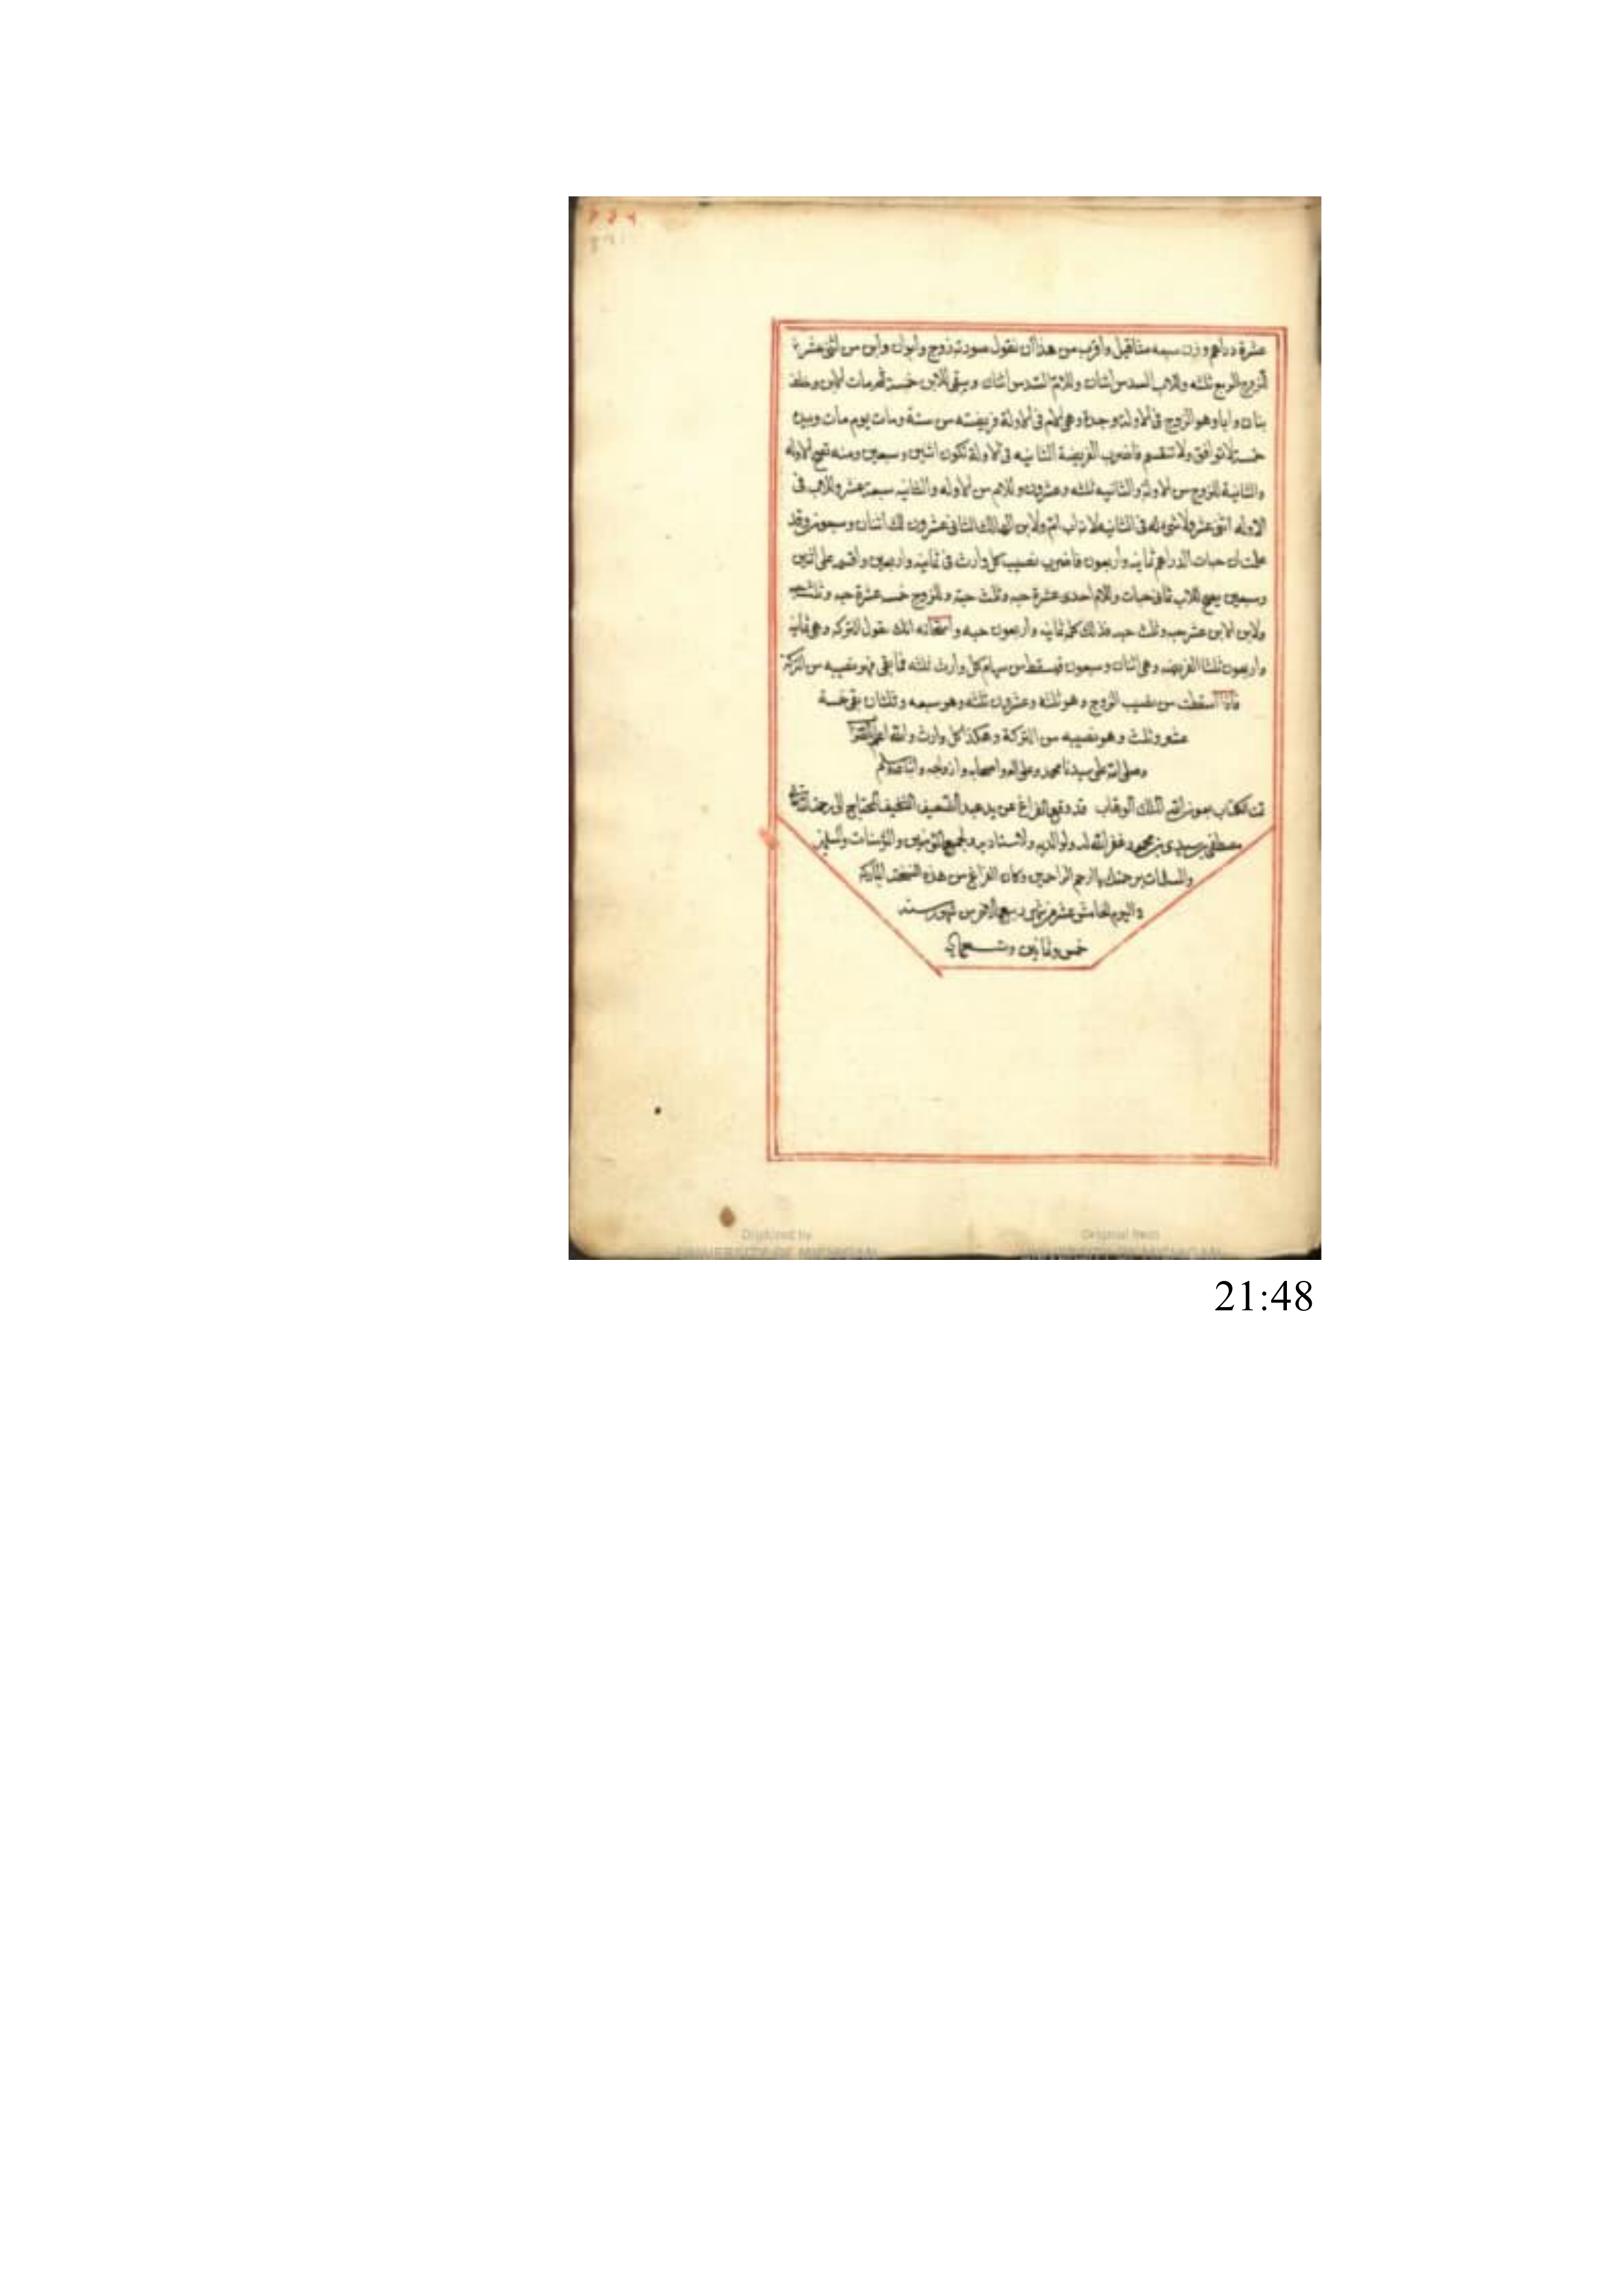 عشرة دراهم وزن سبعه مثاقيل واقرب من هذا ان نقول صورته زوج وابوان وابن من اثنى عشر
للزوج الربع ثلثه وللاب السدس اثنان وللام السدس اثنان ويبقى للابن خمسة ثم مات الابن وخلف
وابا وهو الزوج فى الاولة وجدة وهى الام فى الاولة فريضته من ستة ومات يوم مات وبيده
خمسة لا توافق ولا تنقسم فاضرب الفريضة الثانيه فى الاولة تكون اثنين وسبعين ومنه تصح الاوله
والثانية للزوج من الاولة والثانيه ثلثه وعشرون وللام من الاوله والثانيه سبعة عشر وللاب فى
الاوله اثنى عشر ولا شئ له فى الثانيه لانه اب ام ولابن الهالك الثانى عشرون لك اثنان وسبعون وقد
علمت ان حبات الدراهم ثمانيه واربعون فاضرب نصيب كل وارث فى ثمانيه واربعين واقسمه على اثنين
وسبعين يصح للاب ثمانى حبات وللام احدى عشرة حبه وثلث حبة وللزوج خمسه عشرة حبه وثلث حبه
ولابن الابن عشر حبه وثلث حبه فذلك كله ثمانيه واربعون حبه وامتحانه انك تقول للتركه وهى ثمانيه
واربعون ثلثا الفريضه وهى اثنان وسبعون فيسقط من سهام كل وارث ثلثه فما بقى فهو نصيبه من التركة
فاذا اسقطت من نصيب الزوج وهو ثلثه وعشرون ثلثه وهو سبعه وثلثان بقى خمسة
عشر وثلث وهو نصيبه من التركة وهكذا كل وارث والله اعلم
وصلى الله على سيدنا محمد وعلى اله واصحابه وازواجه
تمت الكتاب بعون الله الملك الوهاب قد وقع الفراغ عن يد عبد الضعيف النحيف المحتاج الى رحمة الله تعالى
مصطفى بن سيدى بن محمود غفر الله له ولوالديه ولاستاديه ولجميع المؤمنين والمؤمنات والمسلمين
والمسلمات برحمتك يا ارحم الراحمين وكان الفراغ من هذه النسخة المباركة
اليوم الخامس عشر من ربيع الاخر من شهور سنه
خمس وثمانين وتسعمايه
Digitized by
UNIVERSITY OF MICHIGAN
Original from
UNIVERSITY OF MICHIGAN
21:48